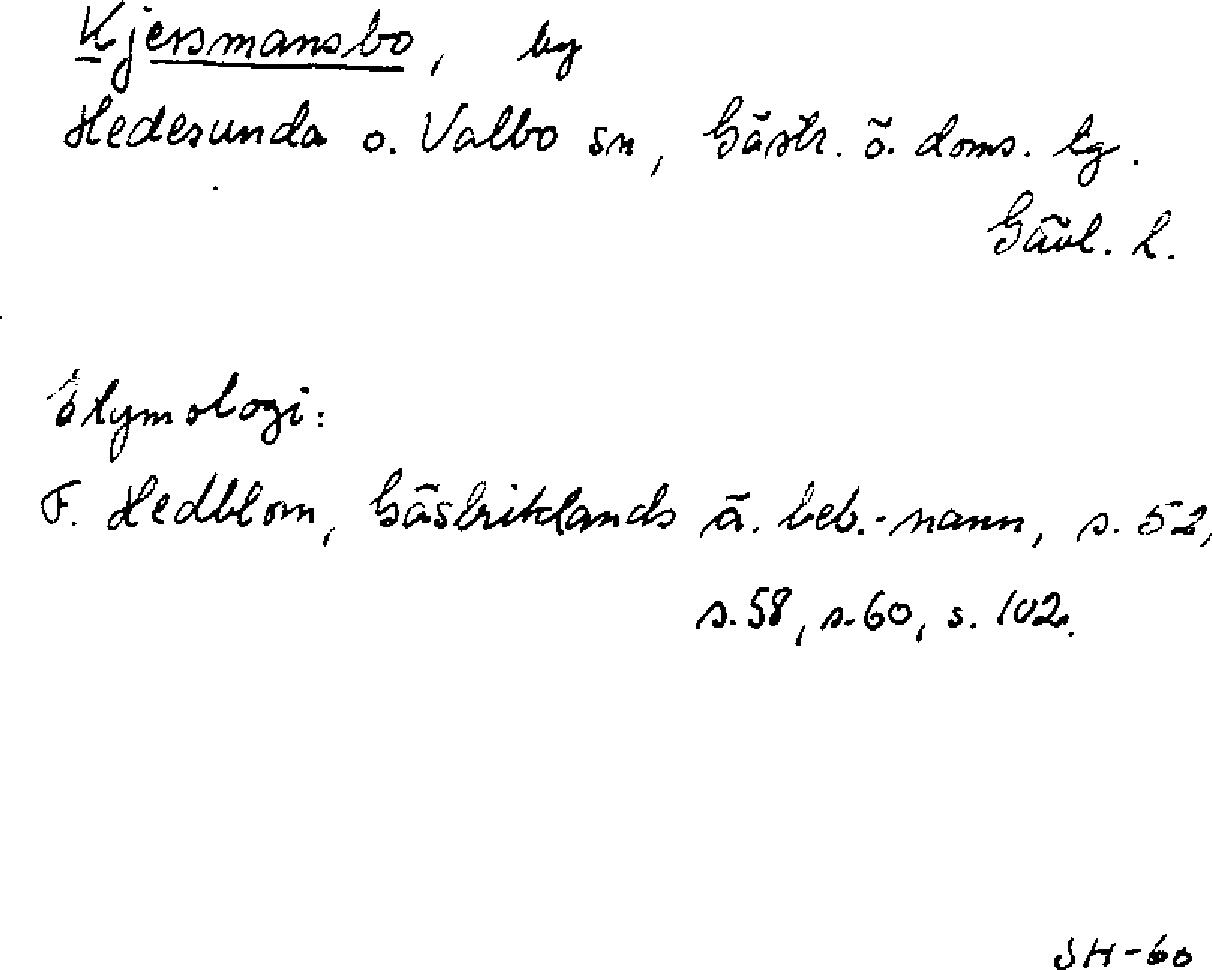 Kjersmansbo, by
Hedesunda o. Valbo sn, Gästr. ö. doms. tg.
Gävl. l.
Etymologi:
F. Hedblom, Gästriklands ä. beb.-namn, s. 52,
s. 58, s. 60, s. 102.
SH-60